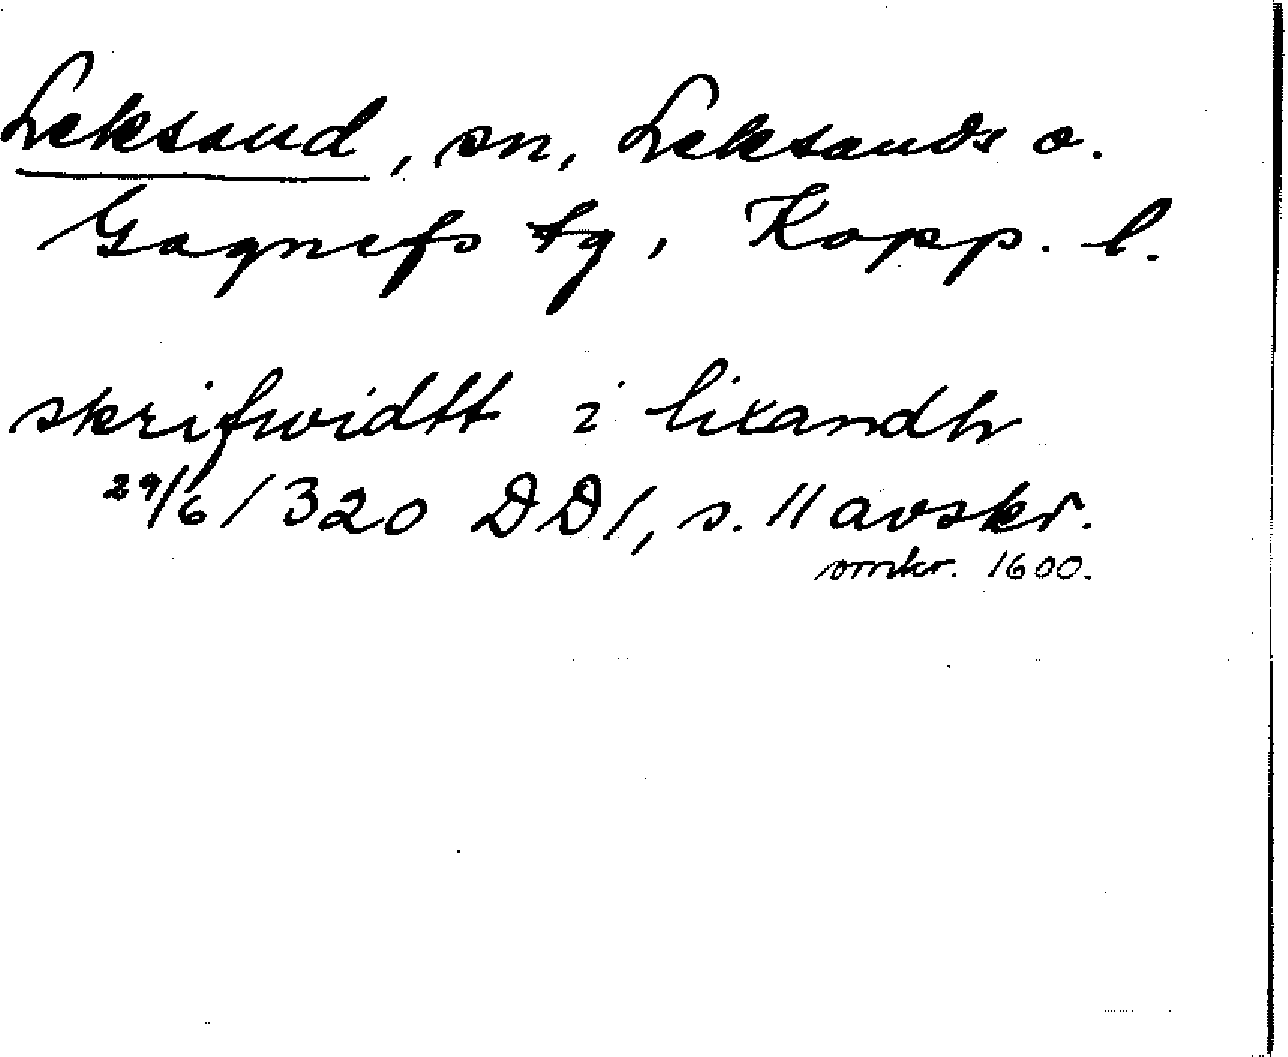 Leksand, sn, Leksands o.
Gagnefs tg, Kopp. l.
skrifwidtt i lixandh
29/6 1320 DD1, s. 11 avskr.
omkr. 1600.